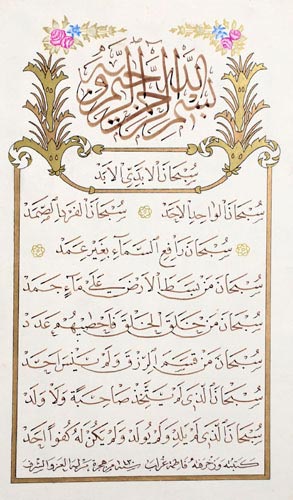 بسم الله الرحمن الرحيم وبه
سُبْحَانَ الْأَبَدِيِّ الْأَبَدْ
سُبْحَانَ الْوَاحِدِ الْأَحَدْ سُبْحَانَ الْفَرْدِ الصَّمَدْ
سُبْحَانَ رَافِعِ السَّمَاءِ بِغَيْرِ عَمَدْ
سُبْحَانَ مَنْ بَسَطَ الْأَرْضَ عَلَى مَاءٍ جَمَدْ
سُبْحَانَ مَنْ خَلَقَ الْخَلْقَ فَأَحْصَاهُمْ عَدَدْ
سُبْحَانَ مَنْ قَسَمَ الرِّزْقَ وَلَمْ يَنْسَ أَحَدْ
سُبْحَانَ الَّذِي لَمْ يَتَّخِذْ صَاحِبَةً وَلَا وَلَدْ
سُبْحَانَ الَّذِي لَمْ يَلِدْ وَلَمْ يُولَدْ وَلَمْ يَكُنْ لَهُ كُفُوًا أَحَدْ
كتبته وزخرفته فاطمة سنة من هجرة من له العز والشرف